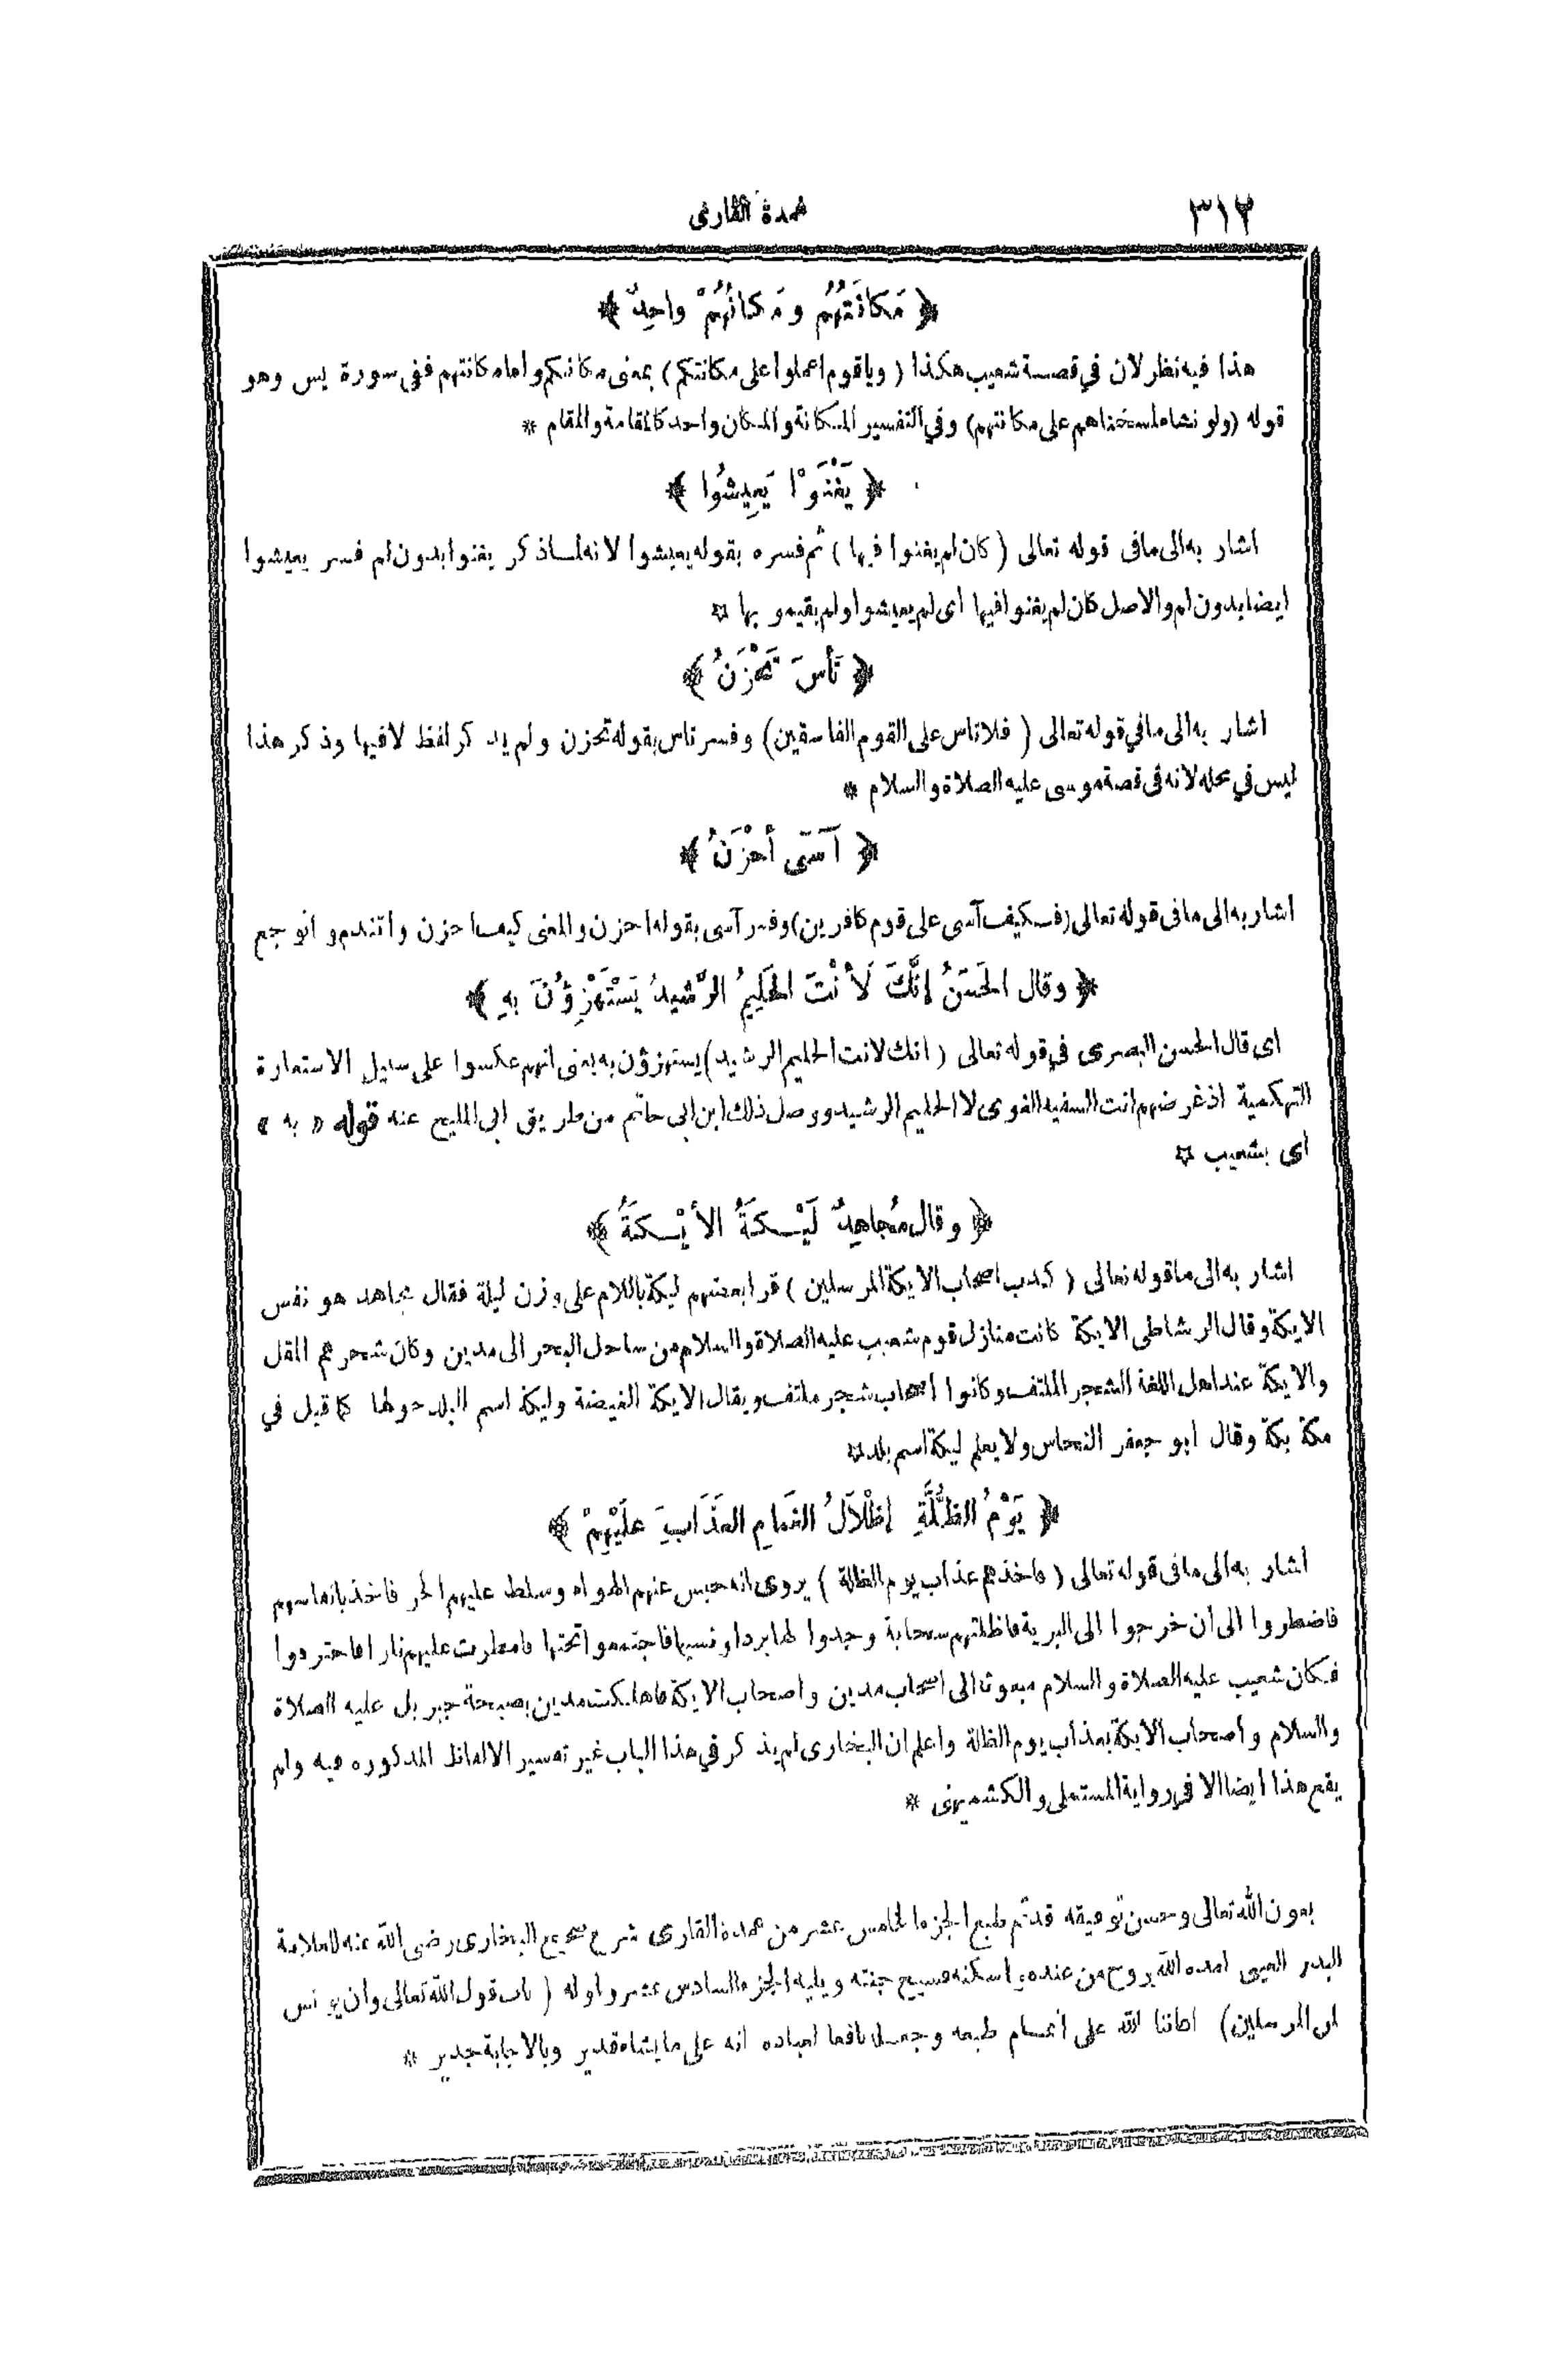 ٣١٢
عمدة القارى
﴿ مَكانَتُهُم ومَكانُهُمْ واحِدٌ ﴾
هذا فيه نظر لان في قصة شعيب هكذا ( وياقوم اعملوا على مكانتكم ) بمعنى مكانكم واما مكانتهم ففي سورة يس وهو
قوله ( ولو نشاء لمسخناهم على مكانتهم) وفي التفسير المكانة والمكان واحد كالمقامة والمقام *
﴿ يَغْنَوْا يَعِيشُوا ﴾
اشار به الى مافى قوله تعالى ( كان لم يغنوا فيها ) ثم فسره بقوله يعيشوا لانه لما ذكر يغنوا بدون لم فسر يعيشوا
ايضا بدون لم والاصل كان لم يغنوا فيها اى لم يعيشوا ولم يقيموبها *
﴿ تَأسَ تَحْزَنُ ﴾
اشار به الى ما في قوله تعالى ( فلا تاس على القوم الفاسقين) وفسر تاس بقوله تحزن ولم يذكر لفظ لا فيها وذكر هذا
ليس في محله لانه فى قصة موسى عليه الصلاة والسلام *
﴿ آسَى أحْزَنُ ﴾
اشار به الى مافى قوله تعالى (فكيف آسى على قوم كافرين) وفسر آسى بقوله احزن والمعنى كيف احزن واتندم واتوجع
﴿ وقال الحَسَنُ إنَّكَ لَأنْتَ الحَلِيمُ الرَّشيدُ يَسْتَهْزِؤُنَ بهِ ﴾
اى قال الحسن البصرى في قوله تعالى ( انك لانت الحليم الرشيد) يستهزؤن به بمعنى انهم عكسوا على سبيل الاستعارة
التهكمية اذ غرضهم انت السفيه الغوى لا الحليم الرشيد ووصل ذلك ابن ابى حاتم من طريق ابى المليح عنه قوله « به »
اى بشعيب *
﴿ وقال مُجاهِدٌ لَيْكَةُ الأيْكَةُ ﴾
اشار به الى ماقوله تعالى ( كذب اصحاب الايكة المرسلين ) قرا بعضهم ليكة باللام على وزن ليلة فقال مجاهد هو نفس
الايكة وقال الرشاطى الايكة كانت منازل قوم شعيب عليه الصلاة والسلام من ساحل البحر الى مدين وكان شجرهم المقل
والايكة عند اهل اللغة الشجر الملتف وكانوا اصحاب شجر ملتف ويقال الايكة الغيضة وليكة اسم البلد حولها كما قيل في
مكة بكة وقال ابو جعفر النحاس ولا يعلم ليكة اسم بلد *
﴿ يَوْمُ الظُّلَّةِ إظْلاَلُ الغَمامِ العَذَابَ علَيْهِمْ ﴾
اشار به الى مافى قوله تعالى ( فاخذهم عذاب يوم الظلة ) يروى انه حبس عنهم الهواء وسلط عليهم الحر فاخذ بانفاسهم
فاضطروا الى أن خرجوا الى البرية فاظلتهم سحابة وجدوا لها بردا ونسيما فاجتمعوا تحتها فامطرت عليهم نارا فاحترقوا
فكان شعيب عليه الصلاة والسلام مبعوثا الى اصحاب مدين واصحاب الايكة فاهلكت مدين بصيحة جبريل عليه الصلاة
والسلام وأصحاب الأيكة بعذاب يوم الظلة واعلم ان البخارى لم يذكر في هذا الباب غير تفسير الالفاظ المذكوره فيه ولم
يقع هذا ايضا الا في رواية المستملى والكشميهنى *
بعون الله تعالى وحسن توفيقه قد تم طبع الجزء الخامس عشر من عمدة القارى شرح صحيح البخارى رضى الله عنه للعلامة
البدر العينى امده الله بروح من عنده واسكنه فسيح جنته ويليه الجزء السادس عشر واوله ( باب قول الله تعالى وان يونس
لمن المرسلين) اعاننا الله على اتمام طبعه وجعله نافعا لعباده انه على ما يشاء قدير وبالاجابة جدير *